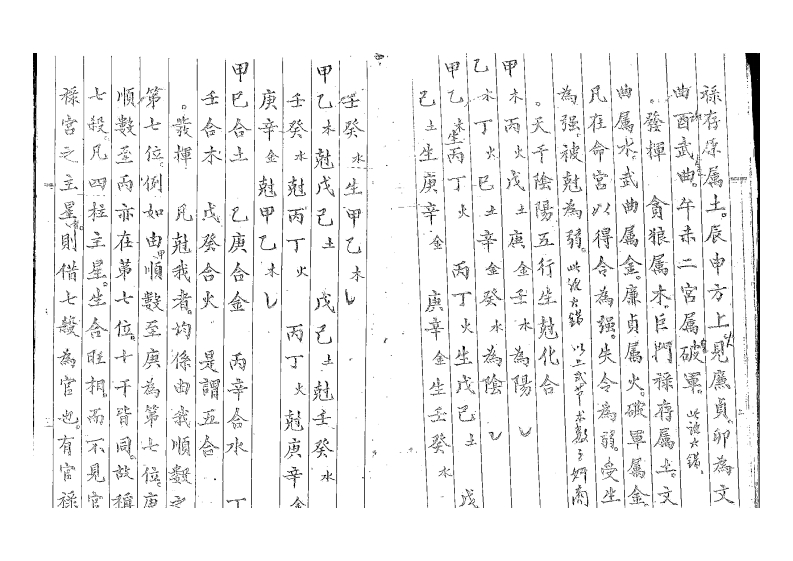 祿存原属土。辰申方上見廉貞。卯為文
曲酉武曲。午未二宮属破軍。此説大錯。
。發揮　貪狼属木。巨門祿存属土。文
曲属水。武曲属金。廉貞属火。破軍属金。
凡在命宮以得令為強。失令為弱。受生
為強。被尅為弱。此説大錯
。天干陰陽五行生尅化合
甲木丙火戊土庚金壬水為陽
乙木丁火巳土辛金癸水為陰
甲乙木生丙丁火　丙丁火生戊己土　戊
己土生庚辛金　庚辛金生壬癸水
壬癸水生甲乙木
甲乙木尅戊己土　戊己土尅壬癸水
壬癸水尅丙丁火　丙丁火尅庚辛金
庚辛金尅甲乙木
甲巳合土　乙庚合金　丙辛合水　丁
壬合木　戊癸合火　是謂五合
。發揮　凡尅我者。均係由我順數之
第七位。例如由甲順數至庚為第七位。庚
順數至丙亦在第七位。十干皆同。故稱
七殺。凡四柱主星。生合旺相。而不見官
祿宮之主星者。則借七殺為官也。有官祿